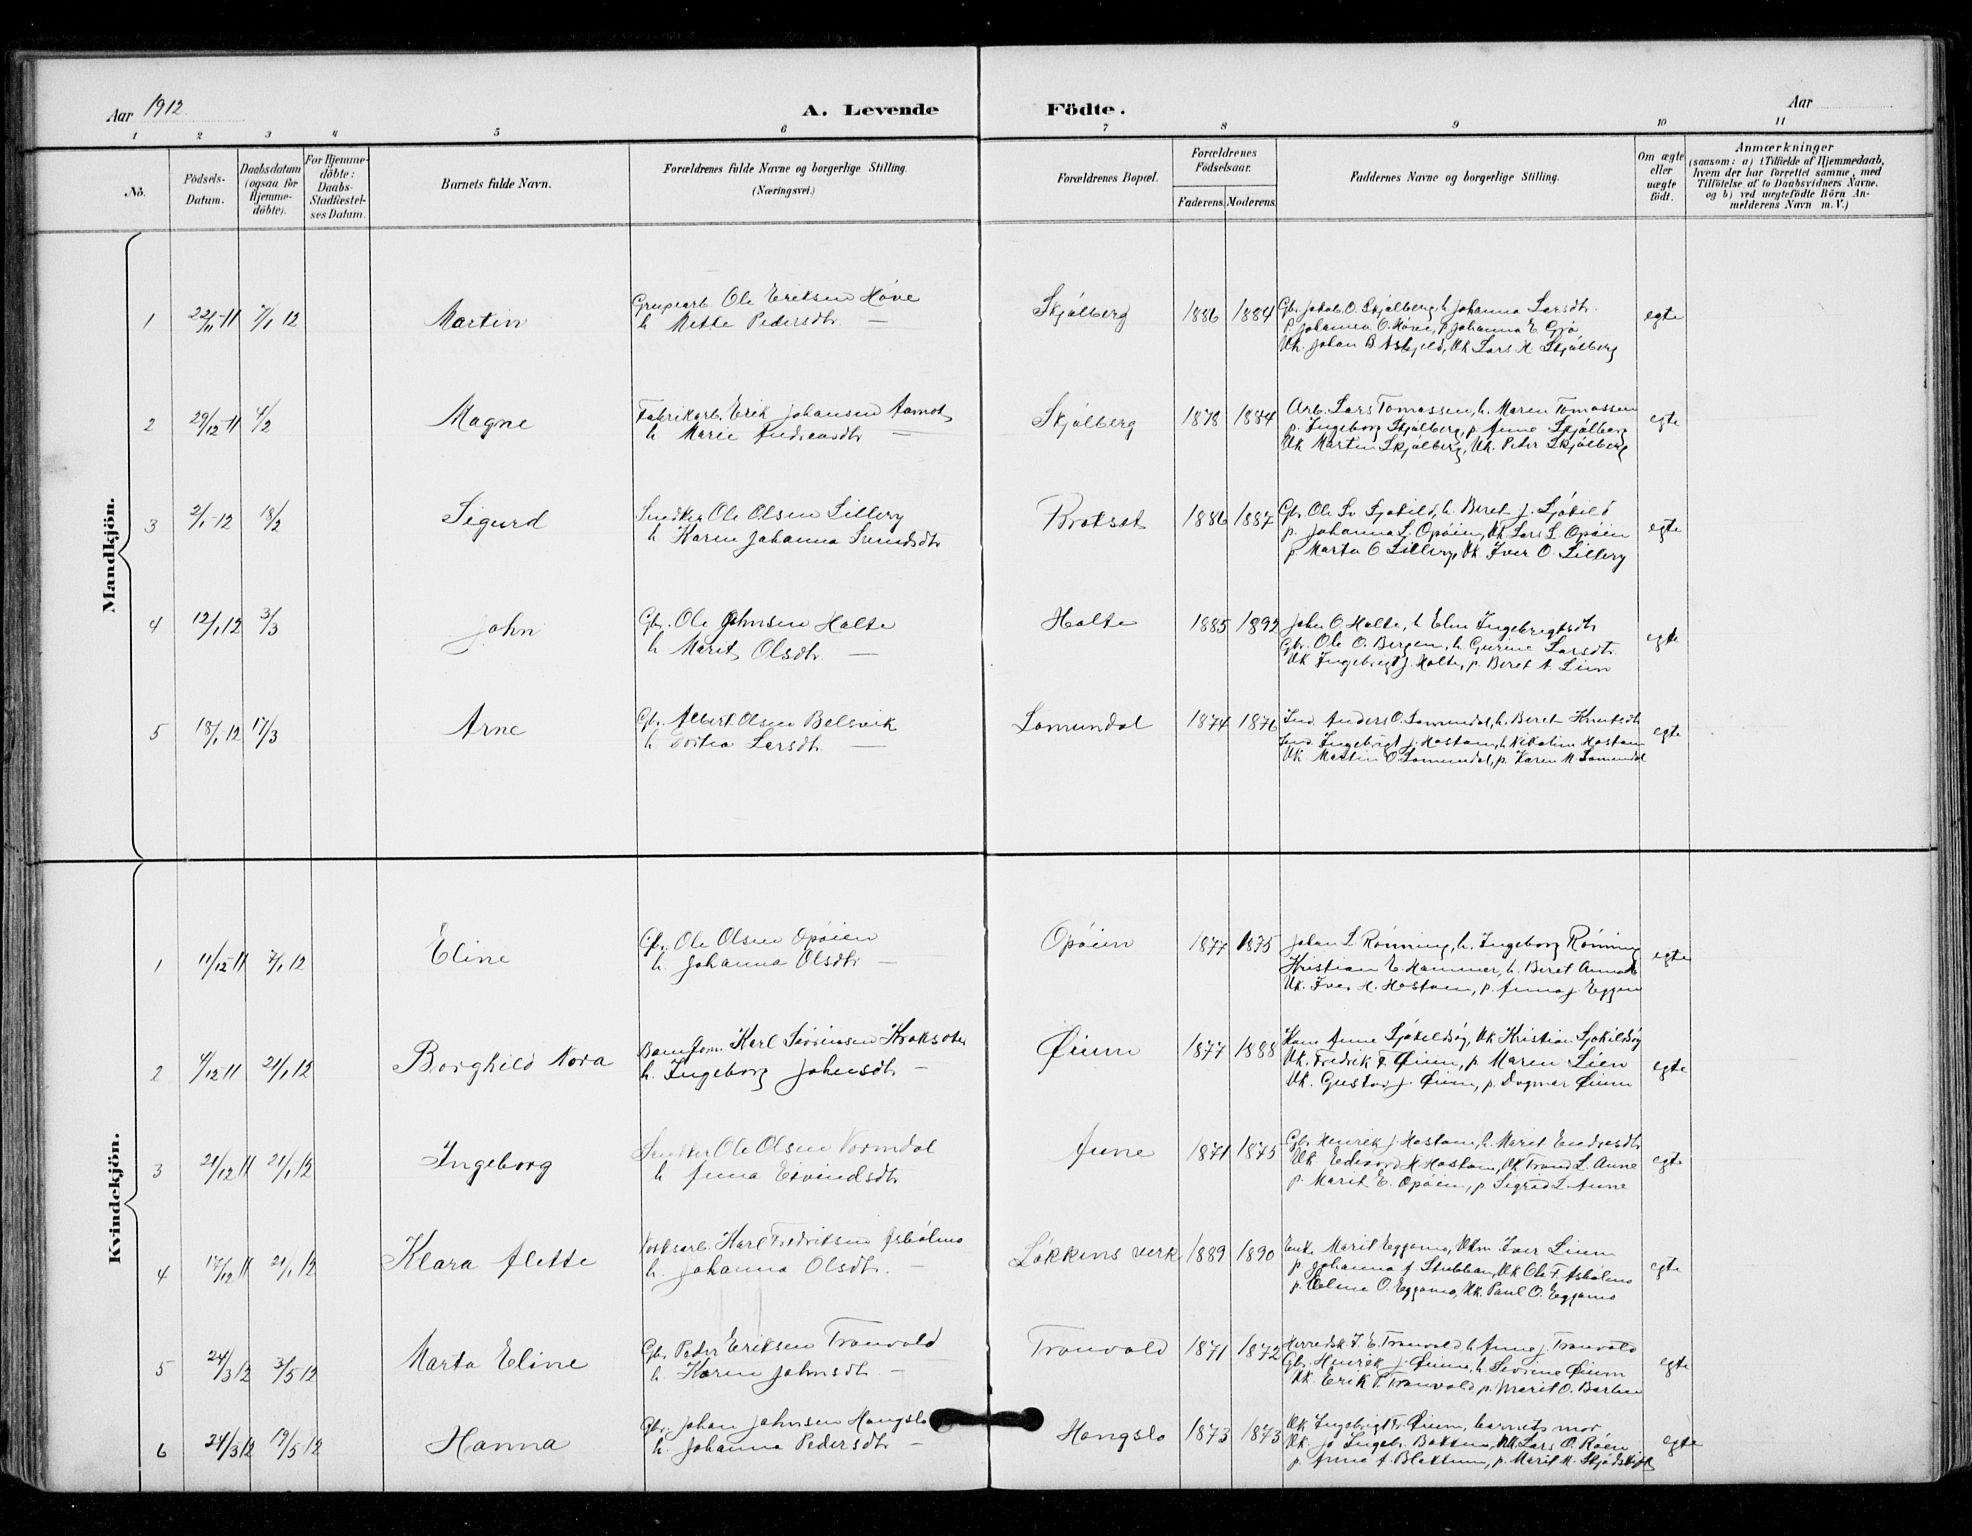 Aar 1912.
A. Levende Födte.
Aar
1 2 3 4 5 6 7 8 9 10 11
No.
Födsels-Datum.
Daabsdatum (ogsaa for Hjemme-döbte).
For Hjemme-döbte: Daabs-Stadfæstel-ses Datum.
Barnets fulde Navn.
Forældrenes fulde Navne og borgerlige Stilling. (Næringsvei.)
Forældrenes Bopæl.
Forældrenes Födselsaar.
Faderens. Moderens.
Faddernes Navne og borgerlige Stilling.
Om ægte eller uægte födt.
Anmærkninger
(saasom: a) i Tilfælde af Hjemmedaab,
hvem der har forrettet samme, med
Tilföielse af to Daabsvidners Navne,
og b) ved uægtefödte Börn An-
melderens Navn m. V.)
Mandkjön.
1 22/11-11 7/1 12 Martin
Grubearb. Ole Eriksen Høve
h. Mette Pedersdtr. —
Skjølberg 1886 1884
Gbr. Jakob O. Skjølberg, h. Johanna Larsdtr.
p. Johanna O. Høve, p. Johanna E. Grø
Uk. Johan B. Asbjeld, Uk Lars H. Skjølberg
egte
2 29/12-11 4/2 Magne
Fabrikarb. Erik Johansen Aamot
h. Marie Andreasdtr —
Skjølberg 1878 1884
Arb. Lars Tomassen, h. Maren Tomassen
p. Ingeborg Skjølberg, p. Anne Skjølberg
Uk Martin Skjølberg, Uk. Peder Skjølberg
egte
3 2/1-12 18/2 Sigurd
Snedker Ole Olsen Lillery
h. Karen Johanna Svendsdtr
Brokset 1886 1887
Gbr. Ole Sv. Sjøkild, h. Beret J. Sjøkild
p. Johanna L. Opøien, Uk Lars L. Opøien
p. Marta O Lillery, Uk. Iver O. Lillery
egte
4 12/1 12 3/3 John
Gbr. Ole Johnsen Holte
h. Marit Olsdtr. —
Holte 1885 1892
John O. Holte, h. Elen Ingebrigtsdtr
Gbr. Ole O. Bergem, h. Gurine Larsdtr.
Uk Ingebrigt J. Holte, p. Beret A. Lien
egte
5 18/1 12 17/3 Arne
Gbr. Albert Olsen Belsvik
h. Dortea Larsdtr. —
Lomundal 1874 1876
Ind. Anders O. Lomundal, h. Beret Knutsdtr
Ind. Ingebrigt J. Hoston, h. Nikoline Hoston
Uk Martin O Lomundal, p. Karen M. Lomundal
egte
Kvindekjön.
1 11/12-11 7/1 12 Eline
Gbr. Ole Olsen Opøien
h. Johanna Olsdtr —
Opøien 1877 1875
Johan L. Rønning, h. Ingeborg Rønning
Kristian E. Hammer, h. Beret
Uk. Iver H. Hoston, p. Anna J. Eggen
egte
2 4/12 11 21/1 12 Borghild Nora
Karl Sørensen
h. Ingeborg Johnsdtr —
Øium 1877 1888
Kone Anne Sjøkildsøy, Uk Kristian Sjøkildsøy
Uk. Fredrik F. Øium, p. Maren Lien
Uk. Gustav J. Øium, p. Dagmar Øium
egte
3 21/12 11 21/1 12 Ingeborg
Snedker Ole Olsen Vormdal
h. Anna Eivindsdtr
Aune 1871 1875
Gbr. Henrik J. Hoston, h. Marit Endresdtr
Uk. Edvard H Hoston, Uk Trond L. Aune
p. Marit E. Opøien, p. Sigrid L. Aune
egte
4 17/12 11 21/1 12 Klara Alette
Karl Fredriksen Asbølmo
h. Johanna Olsdtr. —
Løkkens verk 1889 1890
Enke Marit Eggamo, Ukm Iver Lium
p. Johanna A. Stubban, Uk Ole F. Asbølmo
p. Eline O. Eggamo, Uk. Paul O. Eggamo
egte
5 24/3 12 3/5 12 Marta Eline
Gbr. Peder Eriksen Tronvold
h. Karen Johnsdtr. —
Tronvold 1871 1872
Herredsk. I. E. Tronvold h. Anne J. Tronvold
Gbr. Henrik J. Øium, h. Sevrine Øium
Uk. Erik P. Tronvold, p. Marit O. Barlien
egte
6 24/3 12 19/5 12 Hanna
Gbr. Johan Johnsen Hongslo
h. Johanna Pedersdtr —
Hongslo 1873 1873
Uk. Ingebrigt Fr. Øium, barnets mor,
Uk. Jo Ingebr. Bakken, Uk. Lars O. Røen
p. Anne A. Blekkum, p. Marit M.
egte